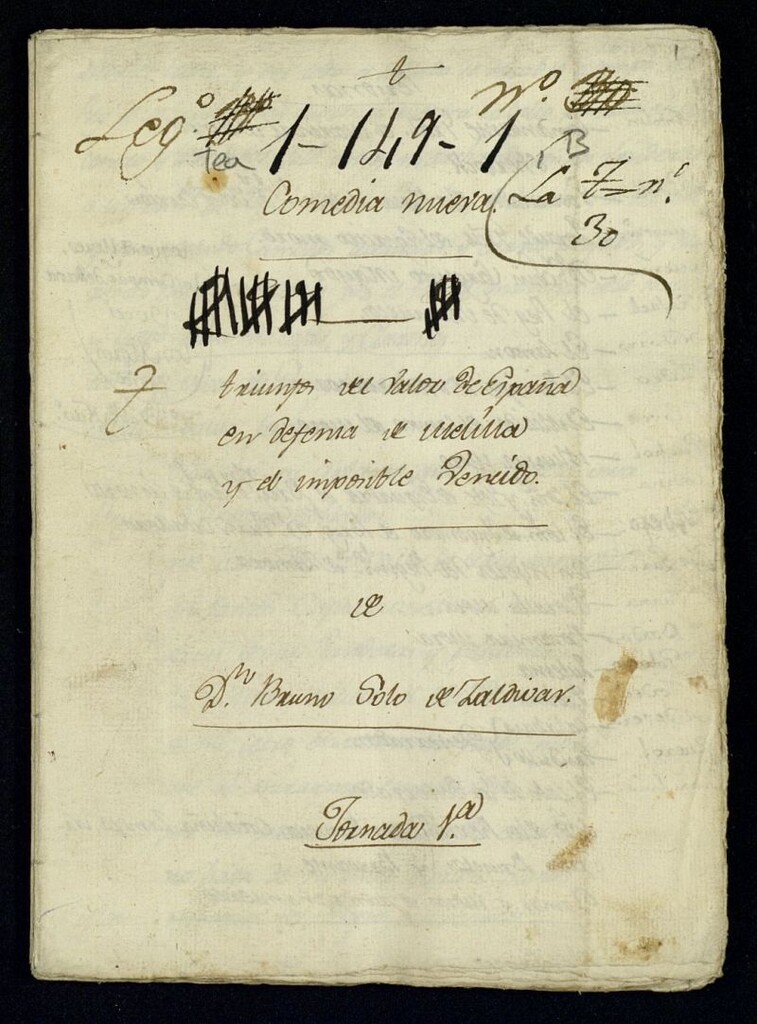 1
Leg.º nº.
Tea 1-149-1, B
Comedia nueva.
La T=n.
30
T triunfo del Valor de España
en defensa de Melilla
y el imposible Vencido.
de
D.n Bruno Solo de Zaldivar.
Jornada 1.ª